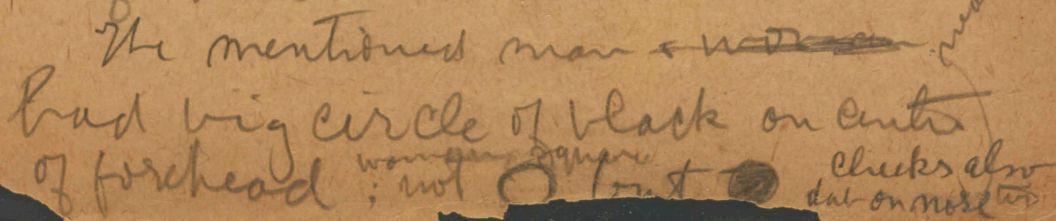 The mentioned man & woman
had big circle of black on centre
woman square
of forehead; not O but ●
cheeks also
dab on nose